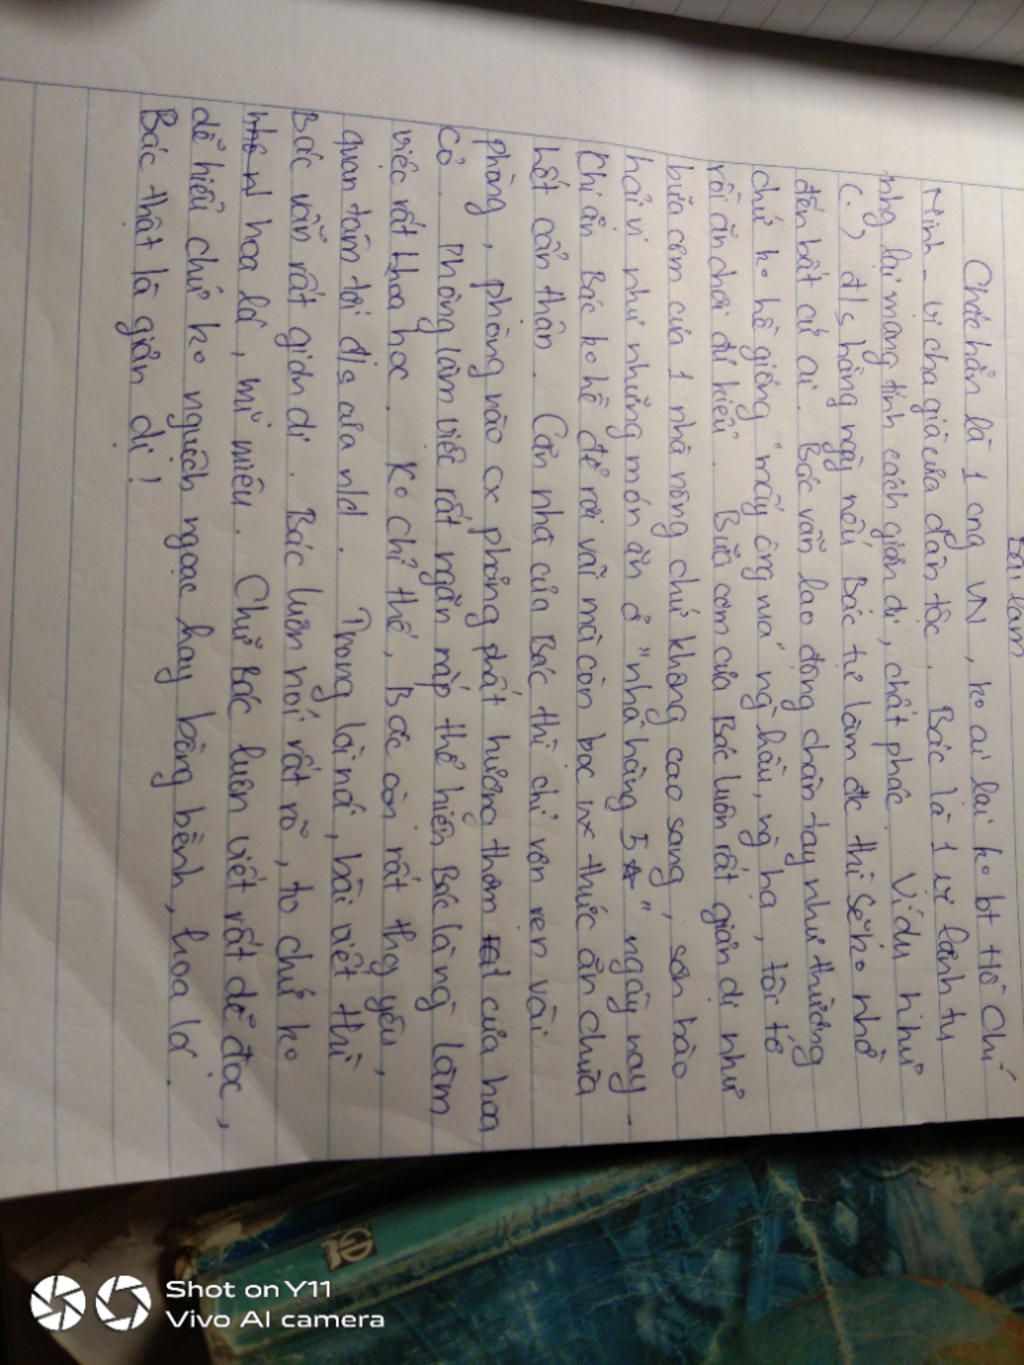 Bài làm
Chắc hẳn là 1 cng VN, ko ai lại ko bt Hồ Chí
Minh - vị cha già của dân tộc. Bác là 1 vị lãnh tụ
nhg lại mang tính cách giản dị, chất phác. Ví dụ như
(.) đ/s hằng ngày nếu Bác tự làm đc thì sẽ ko nhờ
đến bất cứ ai. Bác vẫn lao động chân tay như thường
chứ ko hề giống "mấy ông vua" ng hầu, ng hạ, tôi tớ
rồi ăn chơi đủ kiểu. Bữa cơm của Bác luôn rất giản dị như
bữa cơm của 1 nhà nông chứ không cao sang, sơn hào
hải vị như những món ăn ở "nhà hàng 5 ☆" ngày nay.
Khi ăn Bác ko hề để rơi vãi mà còn bọc nx thức ăn chưa
hết cẩn thận. Căn nhà của Bác thì chỉ vỏn vẹn vài
phòng, phòng nào cx phảng phất hương thơm của hoa
cỏ. Phòng làm việc rất ngăn nắp thể hiện Bác là ng làm
việc rất khoa học. Ko chỉ thế, Bác còn rất thg yêu,
quan tâm tới đ/s của nld. Trong lời nói, bài viết thì
Bác vẫn rất giản dị. Bác luôn nói rất rõ, to chứ ko
hoa lá, mĩ miều. Chữ Bác luôn viết rất dễ đọc,
dễ hiểu chứ ko nguệch ngoạc hay bồng bềnh, hoa lá.
Bác thật là giản dị!
Shot on Y11
Vivo AI camera